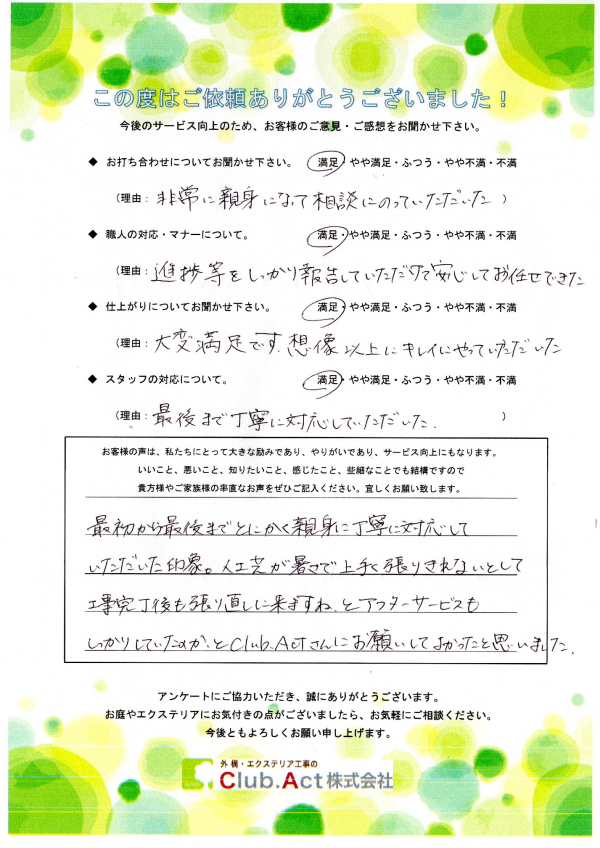 この度はご依頼ありがとうございました！
今後のサービス向上のため、お客様のご意見・ご感想をお聞かせ下さい。
◆ お打ち合わせについてお聞かせ下さい。 満足・やや満足・ふつう・やや不満・不満
（理由：非常に親身になって相談にのっていただいた ）
◆ 職人の対応・マナーについて。 満足・やや満足・ふつう・やや不満・不満
（理由：進捗等をしっかり報告していただけて安心してお任せできた
◆ 仕上がりについてお聞かせ下さい。 満足・やや満足・ふつう・やや不満・不満
（理由：大変満足です。想像以上にキレイにやっていただいた
◆ スタッフの対応について。 満足・やや満足・ふつう・やや不満・不満
（理由：最後まで丁寧に対応していただいた. ）
お客様の声は、私たちにとって大きな励みであり、やりがいであり、サービス向上にもなります。
いいこと、悪いこと、知りたいこと、感じたこと、些細なことでも結構ですので
貴方様やご家族様の率直なお声をぜひご記入ください。宜しくお願い致します。
最初から最後までとにかく親身に丁寧に対応して
いただいた印象。人工芝が暑さで上手く張りきれないとして
工事完了後も張り直しに来ますね、とアフターサービスも
しっかりしていたのか、とClub.Actさんにお願いしてよかったと思いました.
アンケートにご協力いただき、誠にありがとうございます。
お庭やエクステリアにお気付きの点がございましたら、お気軽にご相談ください。
今後ともよろしくお願い申し上げます。
外構・エクステリア工事の
Club.Act株式会社